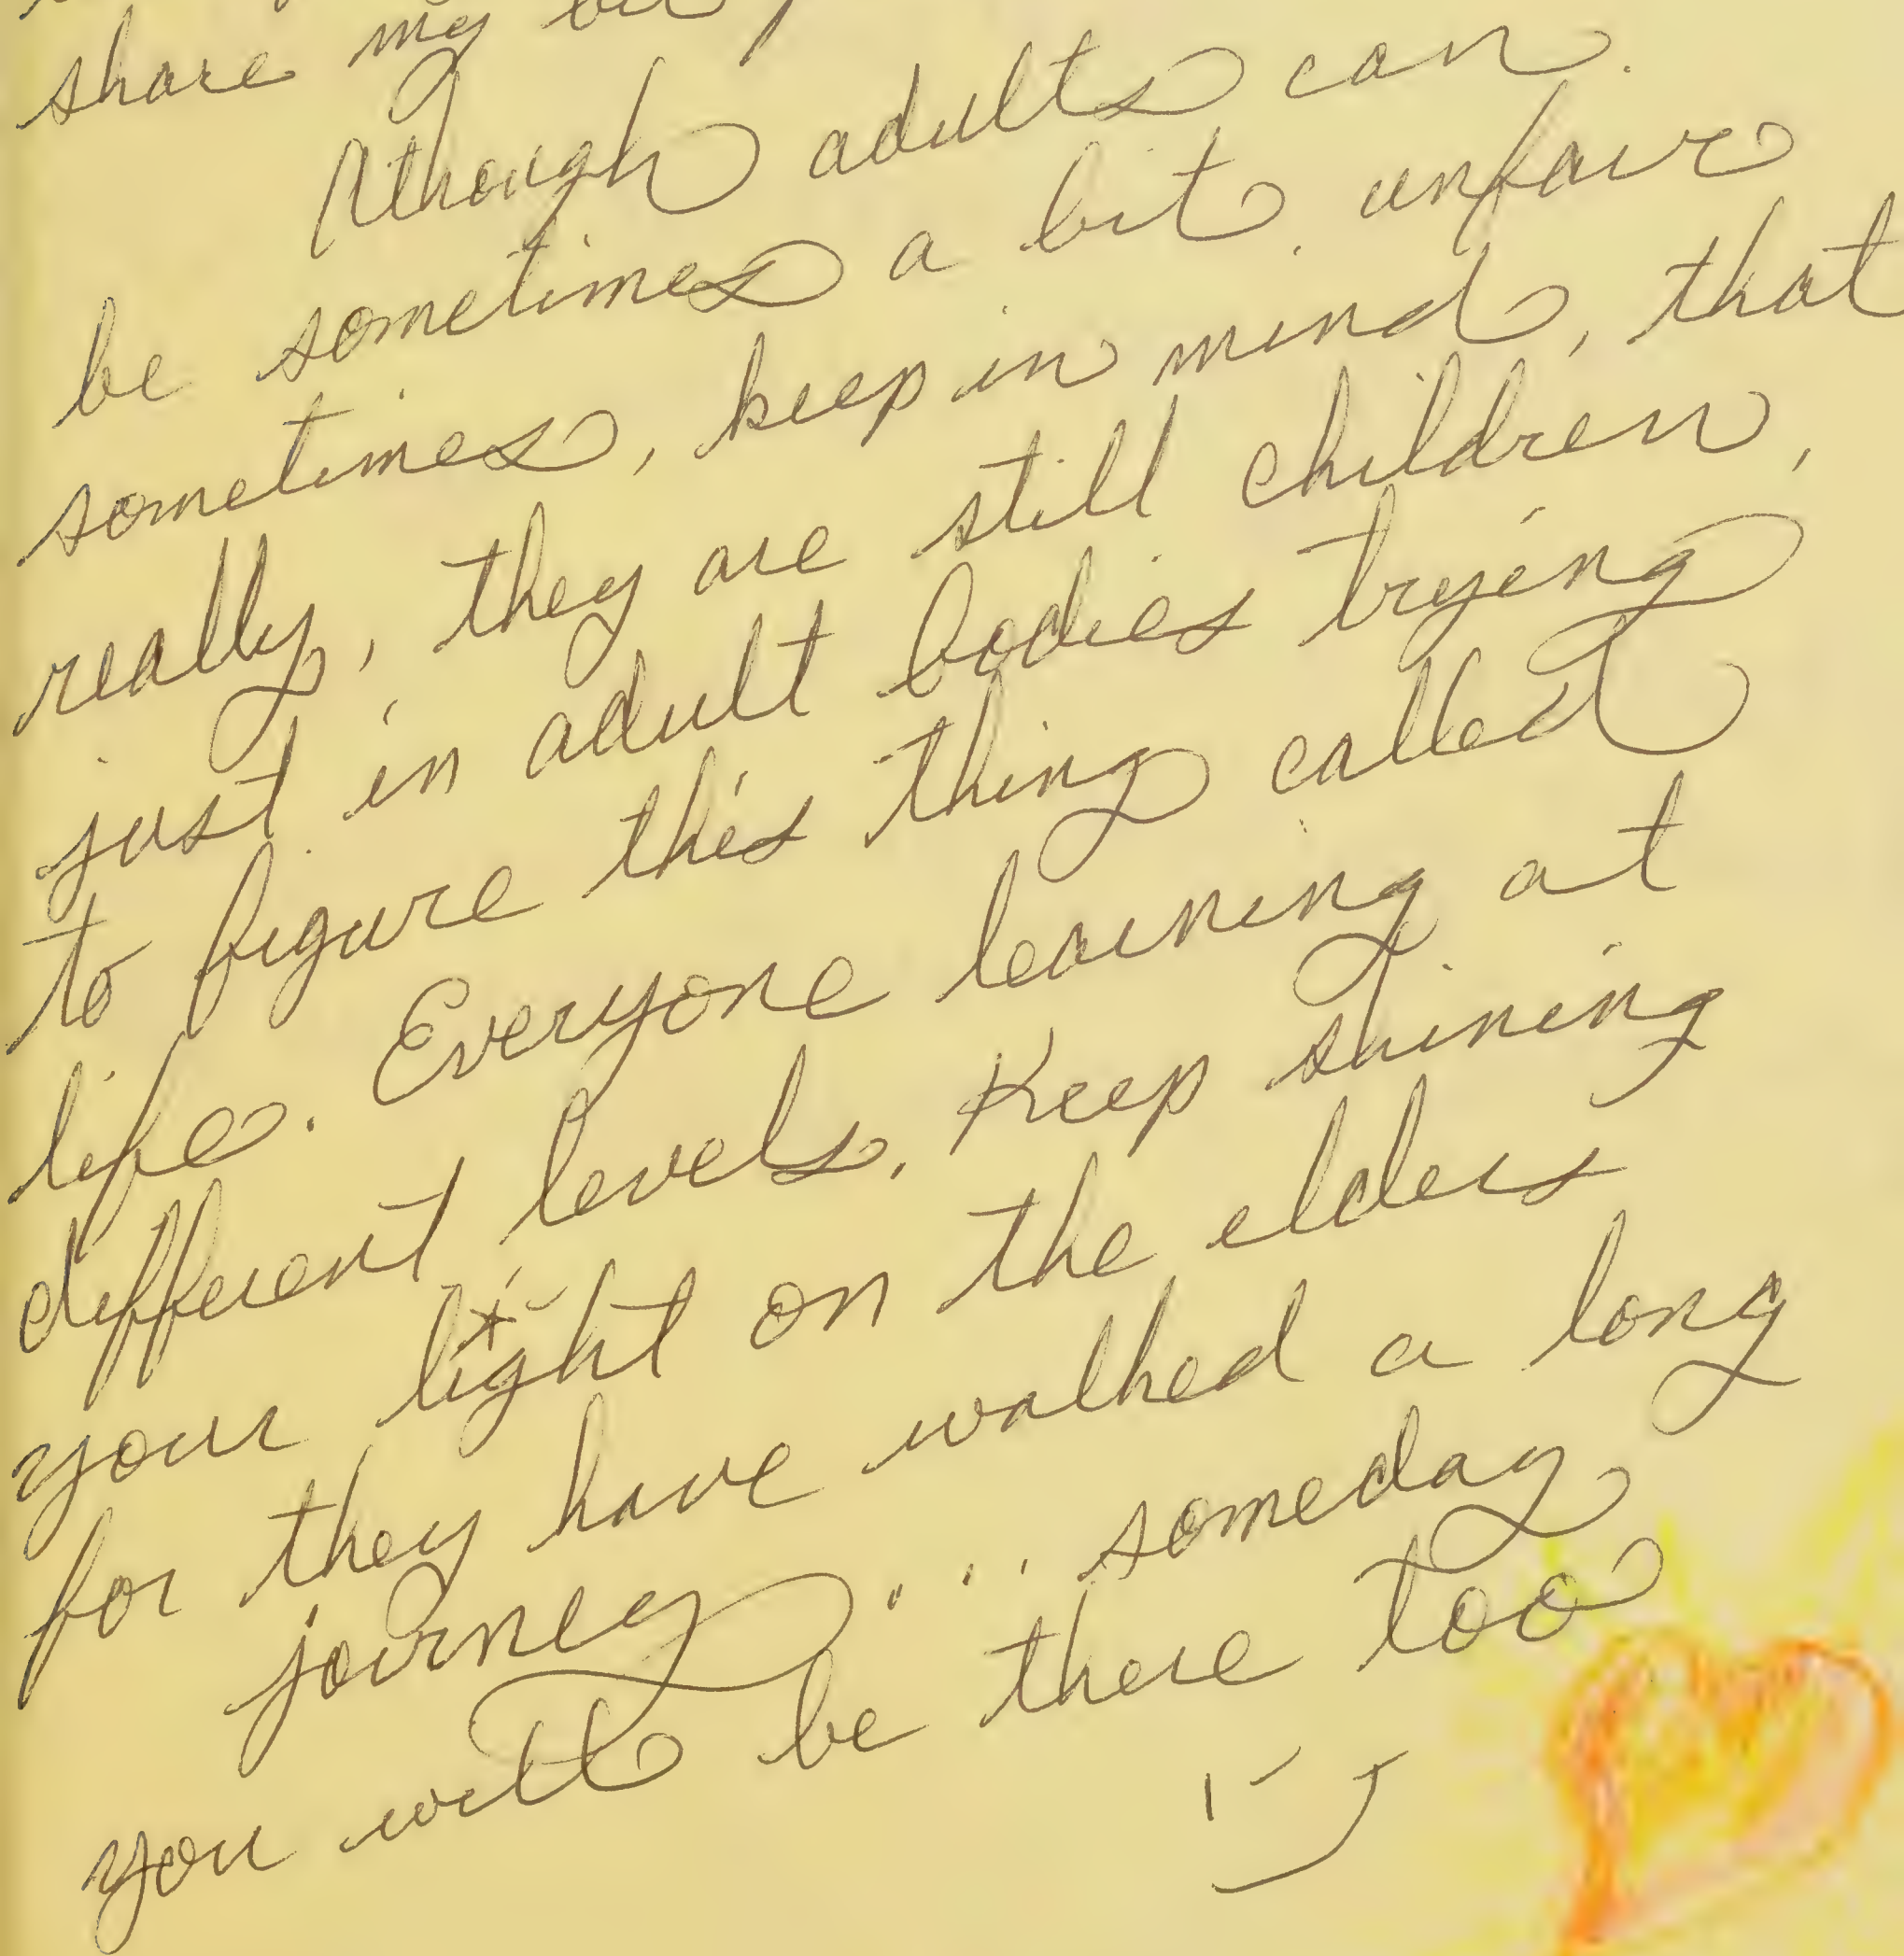 share my
Although adults can
be sometimes a bit unfair
sometimes, keep in mind, that
really, they are still children,
just in adult bodies trying
to figure this thing called
life. Everyone learning at
different levels. Keep shining
your light on the elders
for they have walked a long
journey.... someday
you will be there too